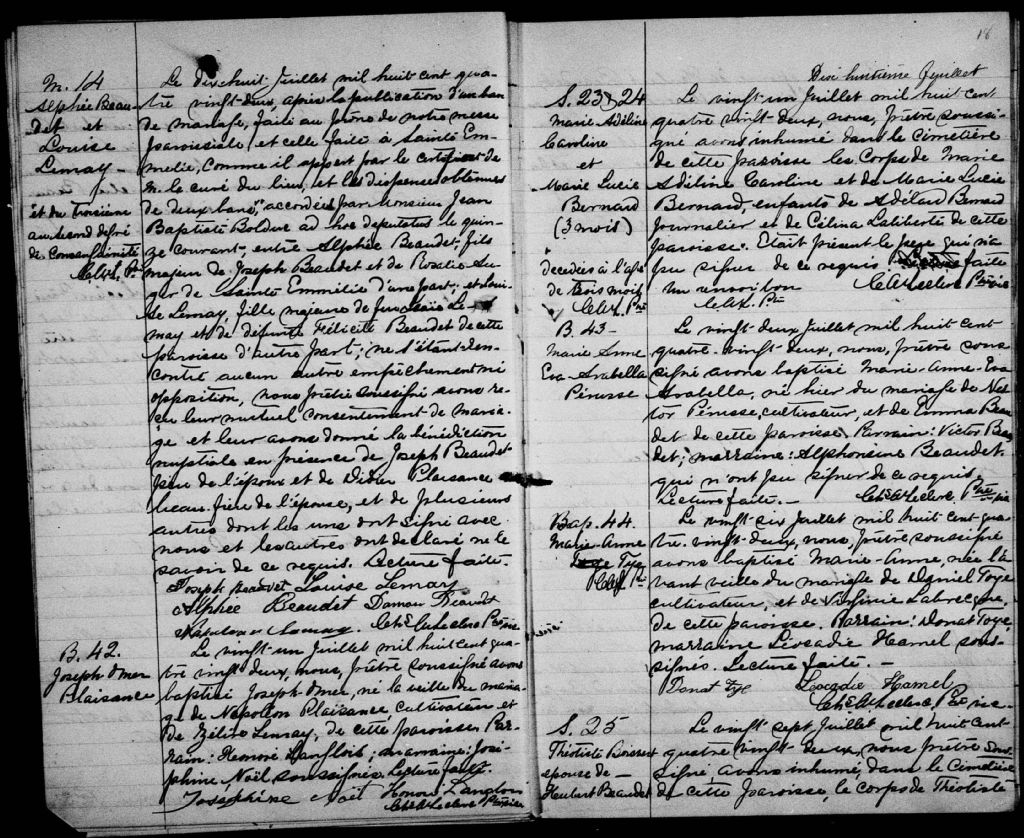 M. 14
Alphée Beau-
det et
Louise
Lemay -
et du troisième
au second degré
de consanguinité
Le dix-huit Juillet mil huit cent qua-
tre vingt-deux, après la publication d'un ban
de mariage, faite au prône de notre messe
paroissiale, et celle faite à Sainte Em-
melie, comme il appert par le certificat de
M. le curé du lieu, et les dispenses obtenues
de deux bans, accordées par Monsieur Jean
Baptiste Bolduc ad hoc deputatus le quin-
ze courant - entre Alphée Beaudet, fils
majeur de Joseph Beaudet et de Rosalie Au-
ger de Sainte Emmélie d'une part; et Loui-
se Lemay, fille majeure de Le-
may et de défunte Félicité Beaudet de cette
paroisse d'autre part; ne s'étant ren-
contré aucun autre empêchement ni
opposition, nous prêtre soussigné avons re-
çu leur mutuel consentement de maria-
ge et leur avons donné la bénédiction
nuptiale en présence de Joseph Beaudet
père de l'époux et de Didier Plaisance
beau-frère de l'épouse, et de plusieurs
autres dont les uns ont signé avec
nous et les autres ont déclaré ne le
savoir de ce requis. Lecture faite.
Joseph Beaudet Louise Lemay
Alphée Beaudet Damase Beaudet
Napoléon Lemay. Chs E. Leclerc Ptre
B. 42.
Joseph Omer
Plaisance
Le vingt-un Juillet mil huit cent qua-
tre vingt deux, nous, prêtre soussigné avons
baptisé Joseph Omer, né la veille du maria-
ge de Napoléon Plaisance cultivateur et
de Zélise Lemay, de cette paroisse. Par-
rain: Honoré Langlois; marraine: José-
phine Noël soussignés. Lecture faite.
Josephine Noël Honoré Langlois
18
Dix huitième feuillet
S. 23 & 24
Marie Adéline
Caroline
et
Marie Lucie
Bernard
(3 mois)
décédées à l'age
de trois mois
Le vingt un Juillet mil huit cent
quatre vingt-deux, nous, prêtre soussi-
gné avons inhumé dans le Cimetière
de cette paroisse les Corps de Marie
Adéline Caroline et de Marie Lucie
Bernard, enfants de Adélard Bernard
Journalier et de Célina Laliberté de cette
paroisse. Etait présent le père qui n'a
pu signer de ce requis. faite
Un renvoi bon
B. 43 -
Marie Anne
Eva Arabella
Pérusse
Le vingt-deux Juillet mil huit cent-
quatre-vingt-deux, nous, prêtre sous
signé avons baptisé Marie-Anne-Eva
Arabella, née hier du mariage de Nes-
tor Pérusse, cultivateur, et de Emma Beau
det de cette paroisse. Parrain: Victor Beau
det; marraine: Alphonsine Beaudet
qui n'ont pu signer de ce requis
Lecture faite. -
Bap. 44.
Marie-Anne
Toye
Le vingt six Juillet mil huit cent qua-
tre-vingt-deux, nous, prêtre soussigné
avons baptisé Marie-Anne, née l'a-
vant veille du mariage de Daniel Toye
cultivateur, et de Virginie Labrecque,
de cette paroisse. Parrain: Donat Toye
marraine Léocadie Hamel sous-
signés. Lecture faite. -
Donat Toye Léocadie Hamel
S. 25
Théotiste
épouse de -
Hubert Beaudet
Le vingt sept Juillet mil huit cent
quatre vingt-deux, nous prêtre sous
signé, avons inhumé dans le Cimetière
de cette paroisse, le corps de Théotiste